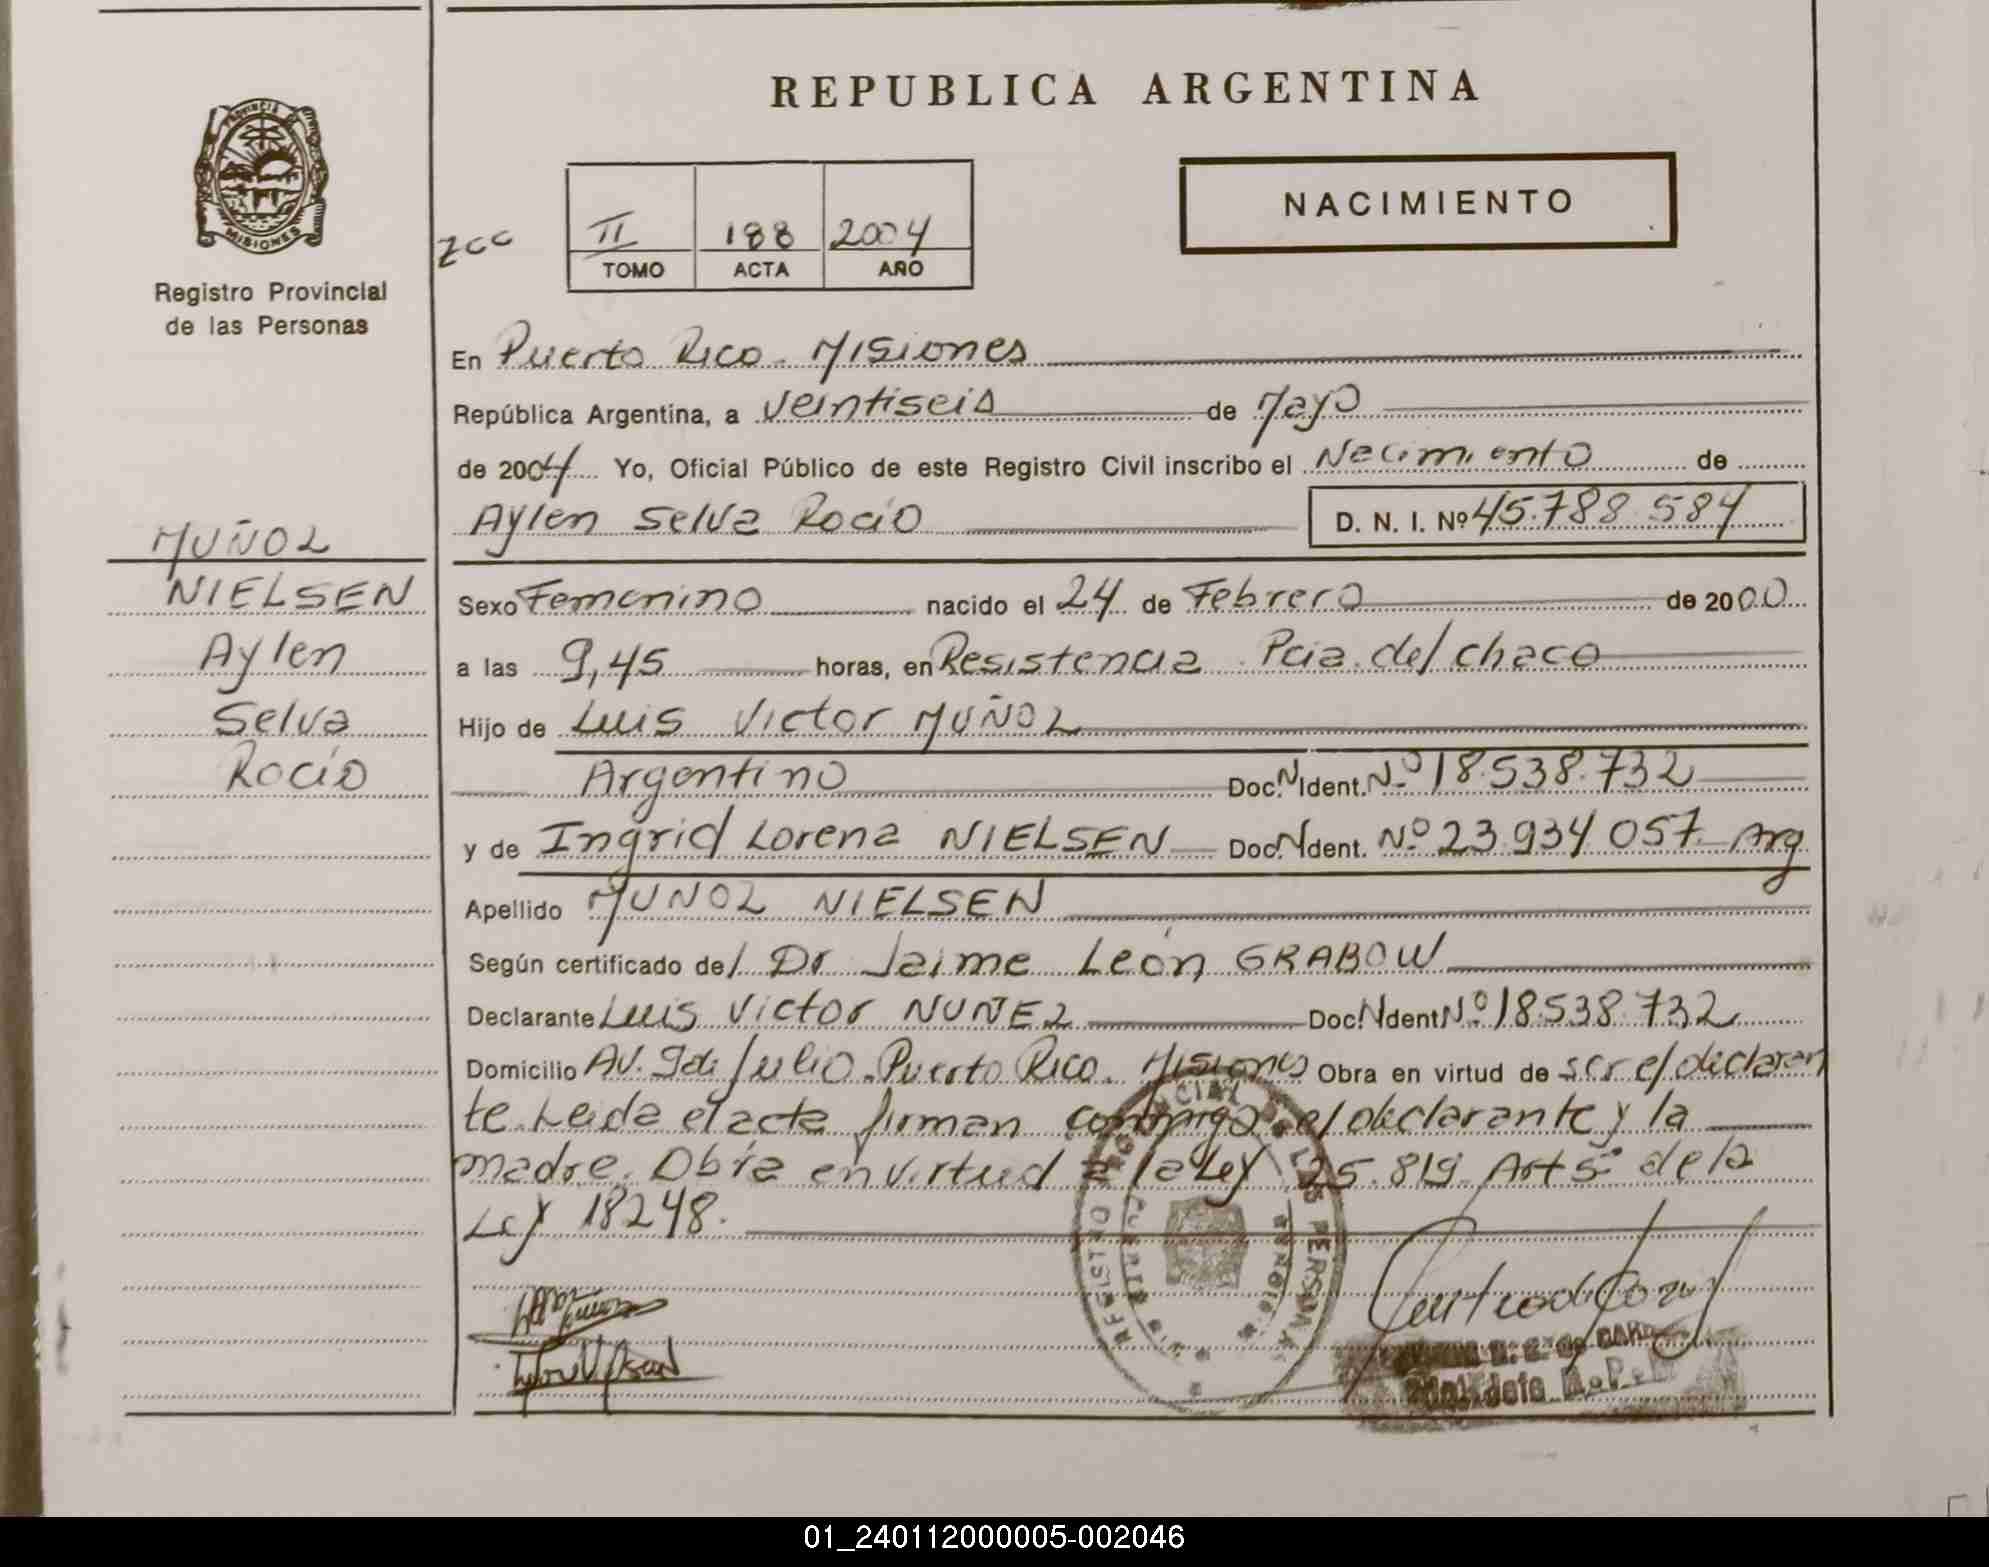 REPUBLICA ARGENTINA
PROVINCIA DE
MISIONES
Registro Provincial
de las Personas
NACIMIENTO
II 188 2004
TOMO ACTA AÑO
En Puerto Rico - Misiones
República Argentina, a veintiseis de Mayo
de 2004 Yo, Oficial Público de este Registro Civil inscribo el Nacimiento de
Aylen Selva Rocío D. N. I. Nº 45.788.584
MUÑOZ
NIELSEN
Aylen
Selva
Rocío
Sexo Femenino nacido el 24 de Febrero de 2000
a las 9,45 horas, en Resistencia Pcia. del Chaco
Hijo de Luis Victor MUÑOZ
Argentino Doc. N Ident. Nº 18.538.732
y de Ingrid Lorena NIELSEN Doc. N Ident. Nº 23.934.057 - Arg
Apellido MUÑOZ NIELSEN
Según certificado del Dr Jaime León GRABOW
Declarante Luis Victor NUÑEZ Doc. N Ident Nº 18.538.732
Domicilio AV. 9 de Julio - Puerto Rico. Misiones Obra en virtud de ser el declaran
te. Leida el acta firman conmigo el declarante y la
madre. Obra en virtud a la Ley 25.819 Art 5º de la
Ley 18248.
01_240112000005-002046